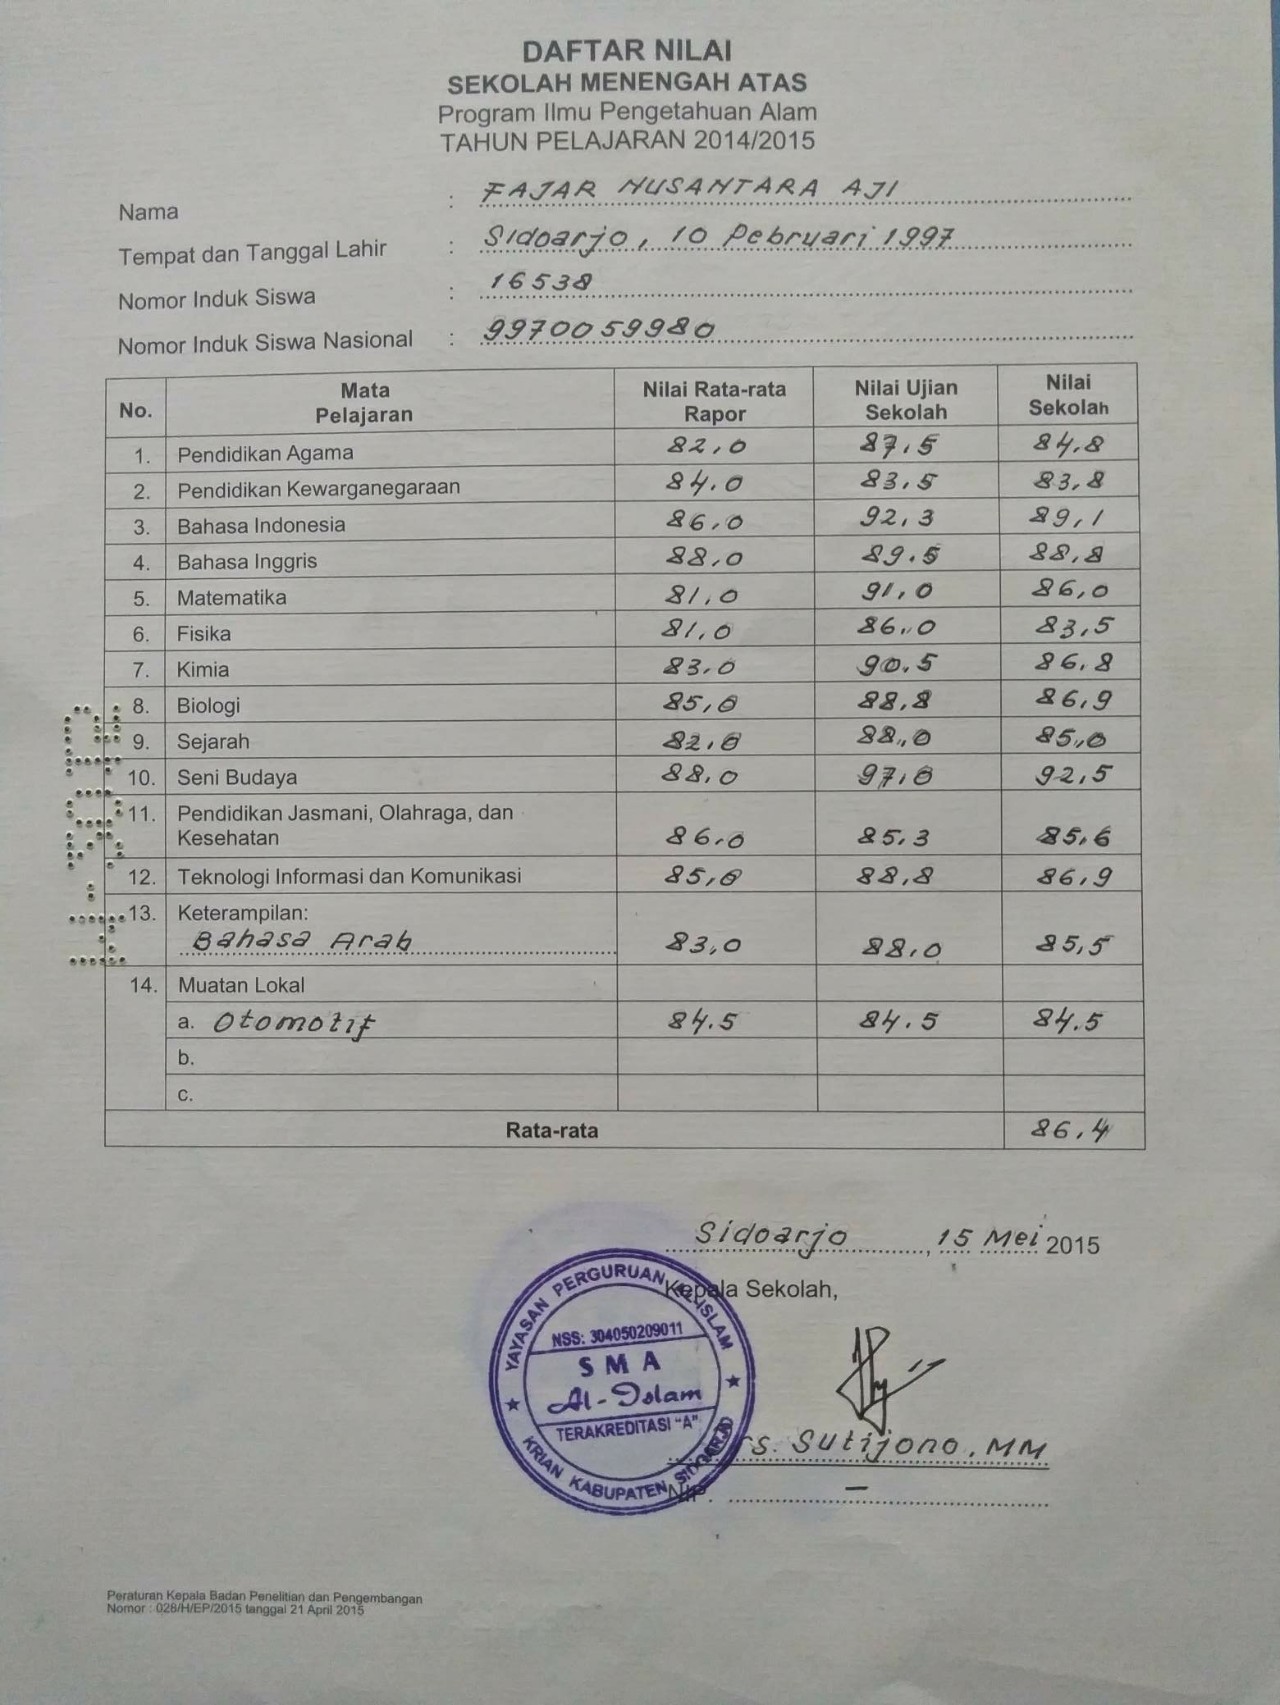 DAFTAR NILAI
SEKOLAH MENENGAH ATAS
Program Ilmu Pengetahuan Alam
TAHUN PELAJARAN 2014/2015
Nama : FAJAR NUSANTARA AJI
Tempat dan Tanggal Lahir : Sidoarjo, 10 Pebruari 1997
Nomor Induk Siswa : 16538
Nomor Induk Siswa Nasional : 9970059980
No. Mata Pelajaran Nilai Rata-rata Rapor Nilai Ujian Sekolah Nilai Sekolah
1. Pendidikan Agama 82,0 87,5 84,8
2. Pendidikan Kewarganegaraan 84,0 83,5 83,8
3. Bahasa Indonesia 86,0 92,3 89,1
4. Bahasa Inggris 88,0 89.5 88,8
5. Matematika 81,0 91,0 86,0
6. Fisika 81,0 86,0 83,5
7. Kimia 83,0 90.5 86,8
8. Biologi 85,0 88,8 86,9
9. Sejarah 82,0 88,0 85,0
10. Seni Budaya 88,0 97,0 92,5
11. Pendidikan Jasmani, Olahraga, dan
Kesehatan 86,0 85,3 85,6
12. Teknologi Informasi dan Komunikasi 85,0 88,8 86,9
13. Keterampilan:
Bahasa Arab 83,0 88,0 85,5
14. Muatan Lokal
a. Otomotif 84.5 84.5 84.5
b.
c.
Rata-rata 86,4
Sidoarjo, 15 Mei 2015
Kepala Sekolah,
YAYASAN PERGURUAN AL-ISLAM
NSS: 304050209011
SMA
Al-Islam
TERAKREDITASI "A"
KRIAN KABUPATEN SIDOARJO
rs. Sutijono, MM
NIP. –
Peraturan Kepala Badan Penelitian dan Pengembangan
Nomor : 028/H/EP/2015 tanggal 21 April 2015